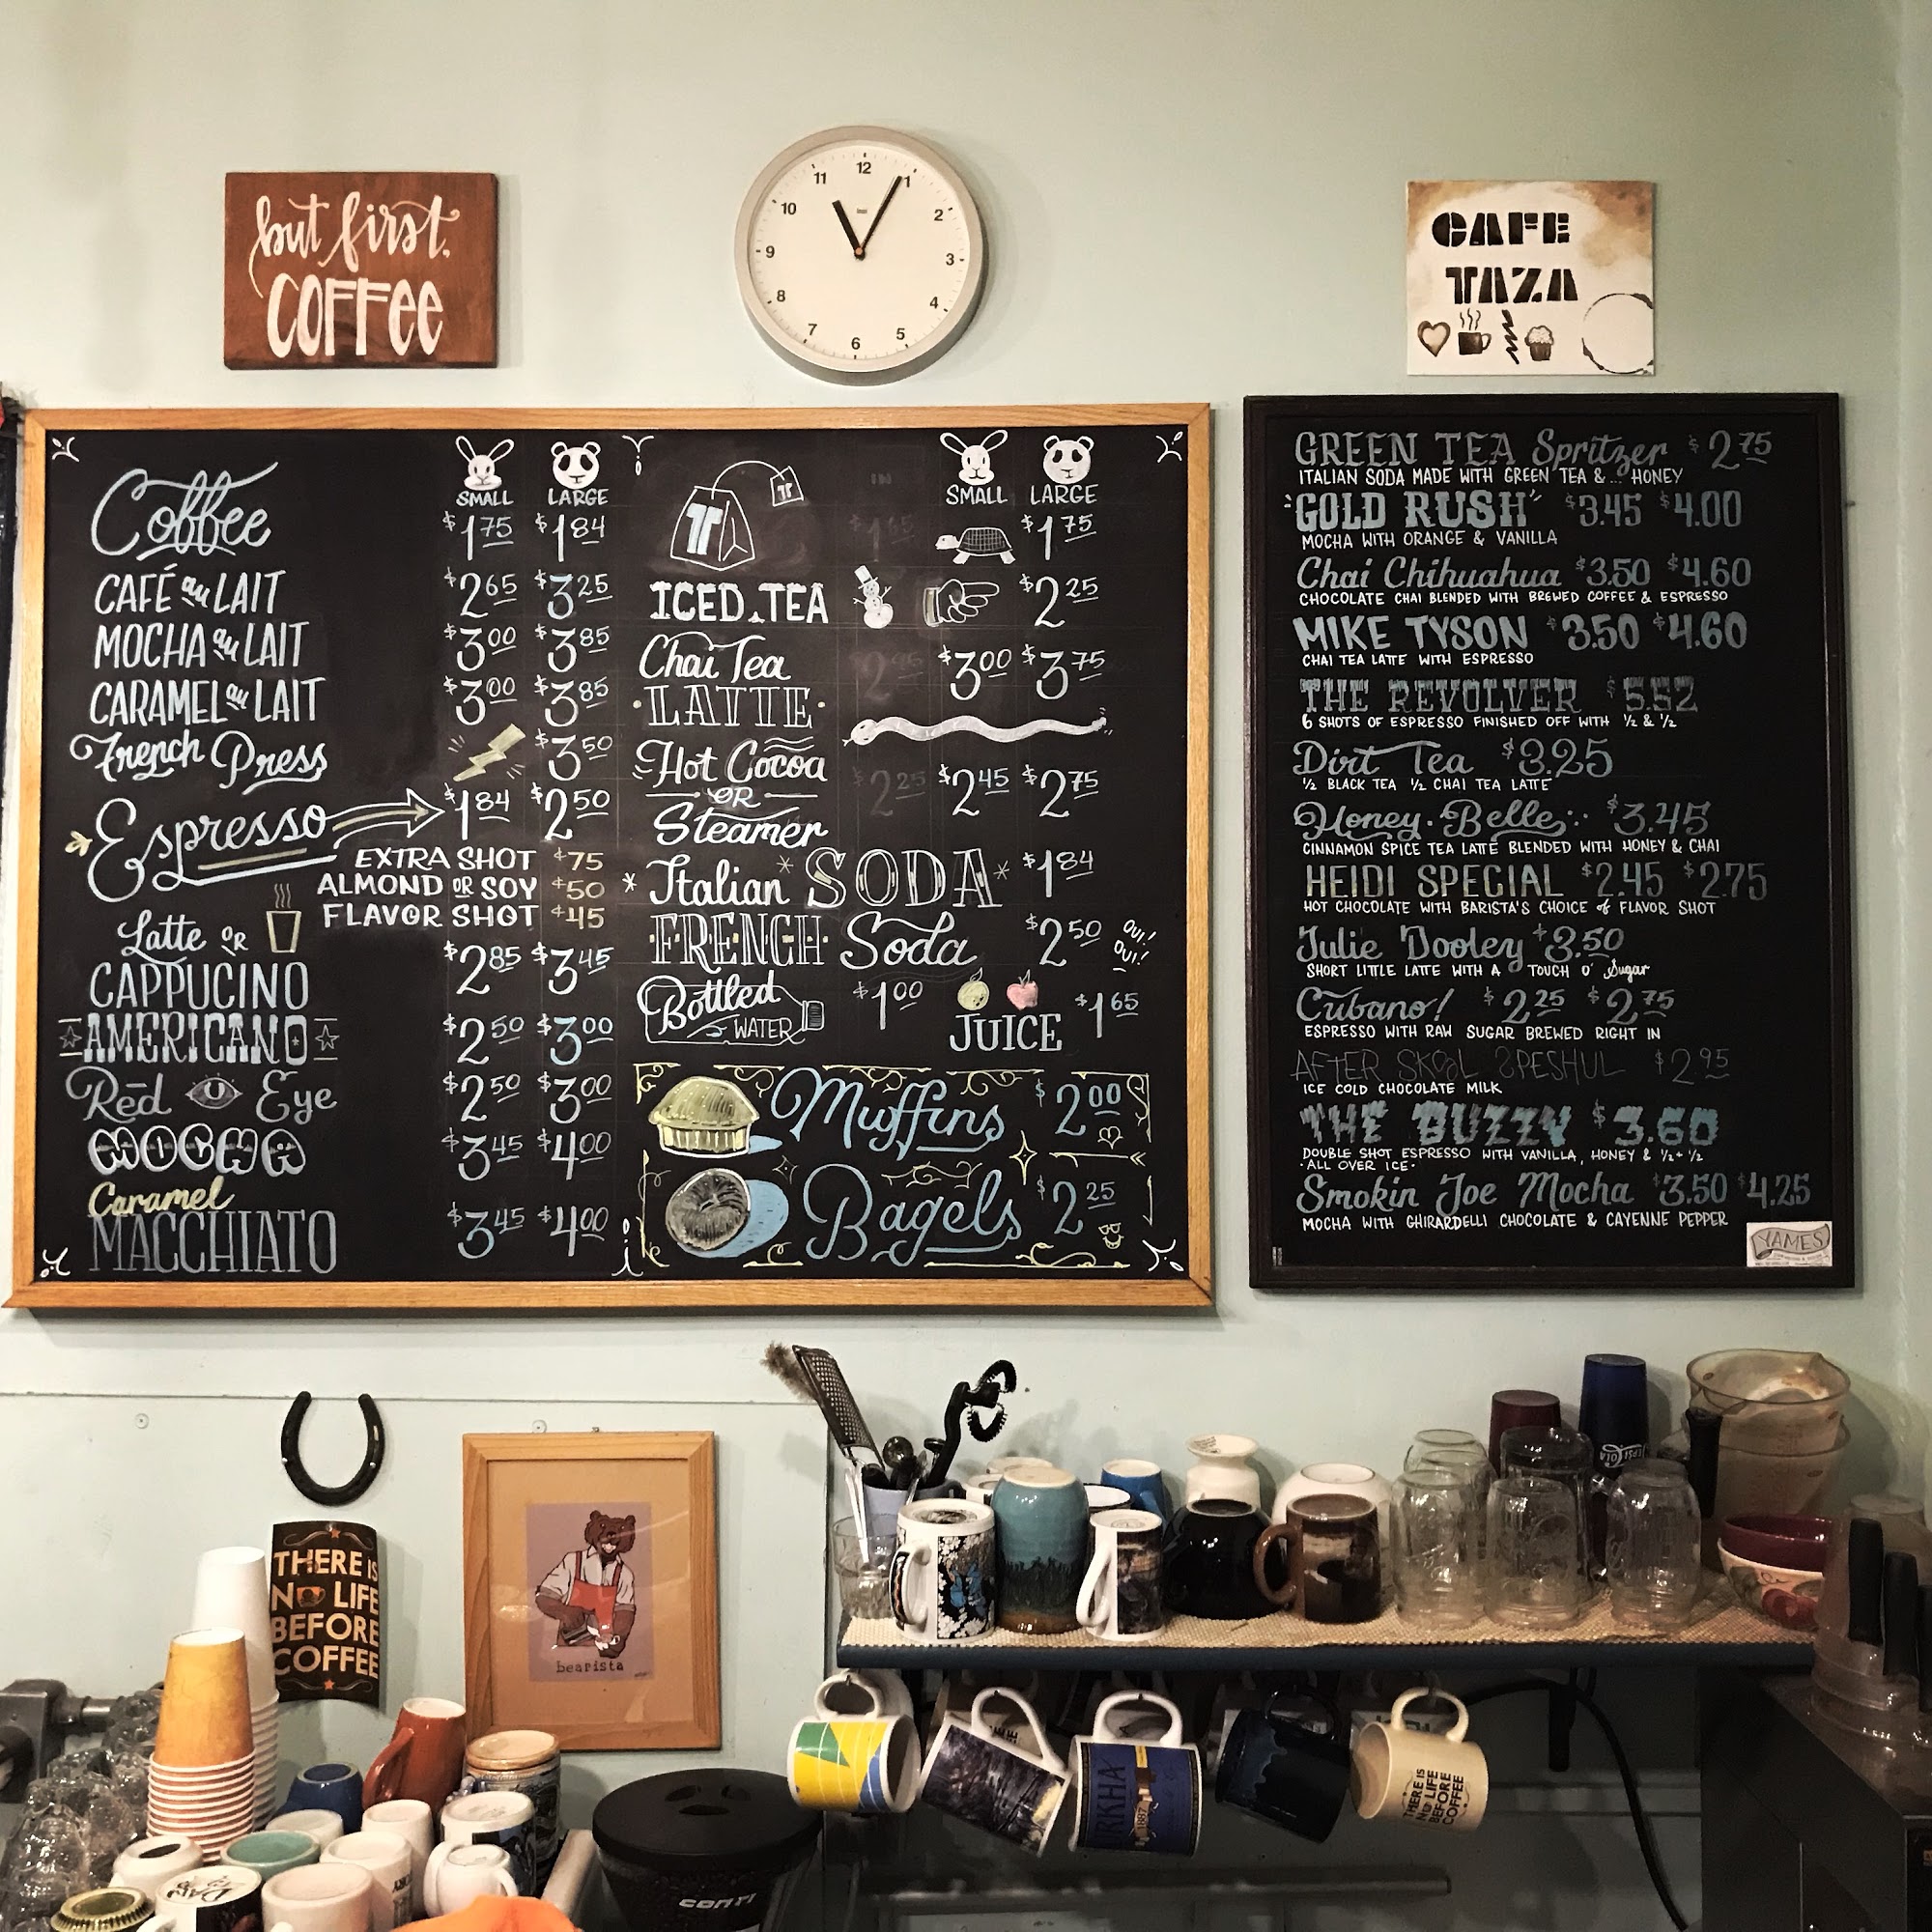 but first,
COFFEE
12
1
2
3
4
5
6
7
8
9
10
11
CAFE
TAZA
SMALL LARGE
Coffee $1.75 $1.84
CAFÉ au LAIT $2.65 $3.25
MOCHA au LAIT $3.00 $3.85
CARAMEL au LAIT $3.00 $3.85
French Press $3.50
Espresso $1.84 $2.50
EXTRA SHOT ¢75
ALMOND OR SOY ¢50
FLAVOR SHOT ¢45
Latte OR
CAPPUCINO $2.85 $3.45
AMERICANO $2.50 $3.00
Red Eye $2.50 $3.00
MOCHA $3.45 $4.00
Caramel
MACCHIATO $3.45 $4.00
SMALL LARGE
T T $1.75
ICED TEA $2.25
Chai Tea
LATTE $3.00 $3.75
Hot Cocoa
OR $2.45 $2.75
Steamer
* Italian * SODA * $1.84
FRENCH Soda $2.50 OUI!
OUI!
Bottled
WATER $1.00
JUICE $1.65
Muffins $2.00
Bagels $2.25
GREEN TEA Spritzer $2.75
ITALIAN SODA MADE WITH GREEN TEA &... HONEY
"GOLD RUSH" $3.45 $4.00
MOCHA WITH ORANGE & VANILLA
Chai Chihuahua $3.50 $4.60
CHOCOLATE CHAI BLENDED WITH BREWED COFFEE & ESPRESSO
MIKE TYSON $3.50 $4.60
CHAI TEA LATTE WITH ESPRESSO
THE REVOLVER $5.52
6 SHOTS OF ESPRESSO FINISHED OFF WITH ½ & ½
Dirt Tea $3.25
½ BLACK TEA ½ CHAI TEA LATTE
Honey·Belle $3.45
CINNAMON SPICE TEA LATTE BLENDED WITH HONEY & CHAI
HEIDI SPECIAL $2.45 $2.75
HOT CHOCOLATE WITH BARISTA'S CHOICE of FLAVOR SHOT
Julie Dooley $3.50
SHORT LITTLE LATTE WITH A TOUCH O' Sugar
Cubano! $2.25 $2.75
ESPRESSO WITH RAW SUGAR BREWED RIGHT IN
AFTER SKOOL SPESHUL $2.95
ICE COLD CHOCOLATE MILK
THE BUZZY $3.60
DOUBLE SHOT ESPRESSO WITH VANILLA, HONEY & ½ + ½
·ALL OVER ICE·
Smokin Joe Mocha $3.50 $4.25
MOCHA WITH GHIRARDELLI CHOCOLATE & CAYENNE PEPPER
YAMES
THERE IS
NO LIFE
BEFORE
COFFEE
bearista
PEPSI COLA
1887
THERE IS
NO LIFE
BEFORE
COFFEE
conti